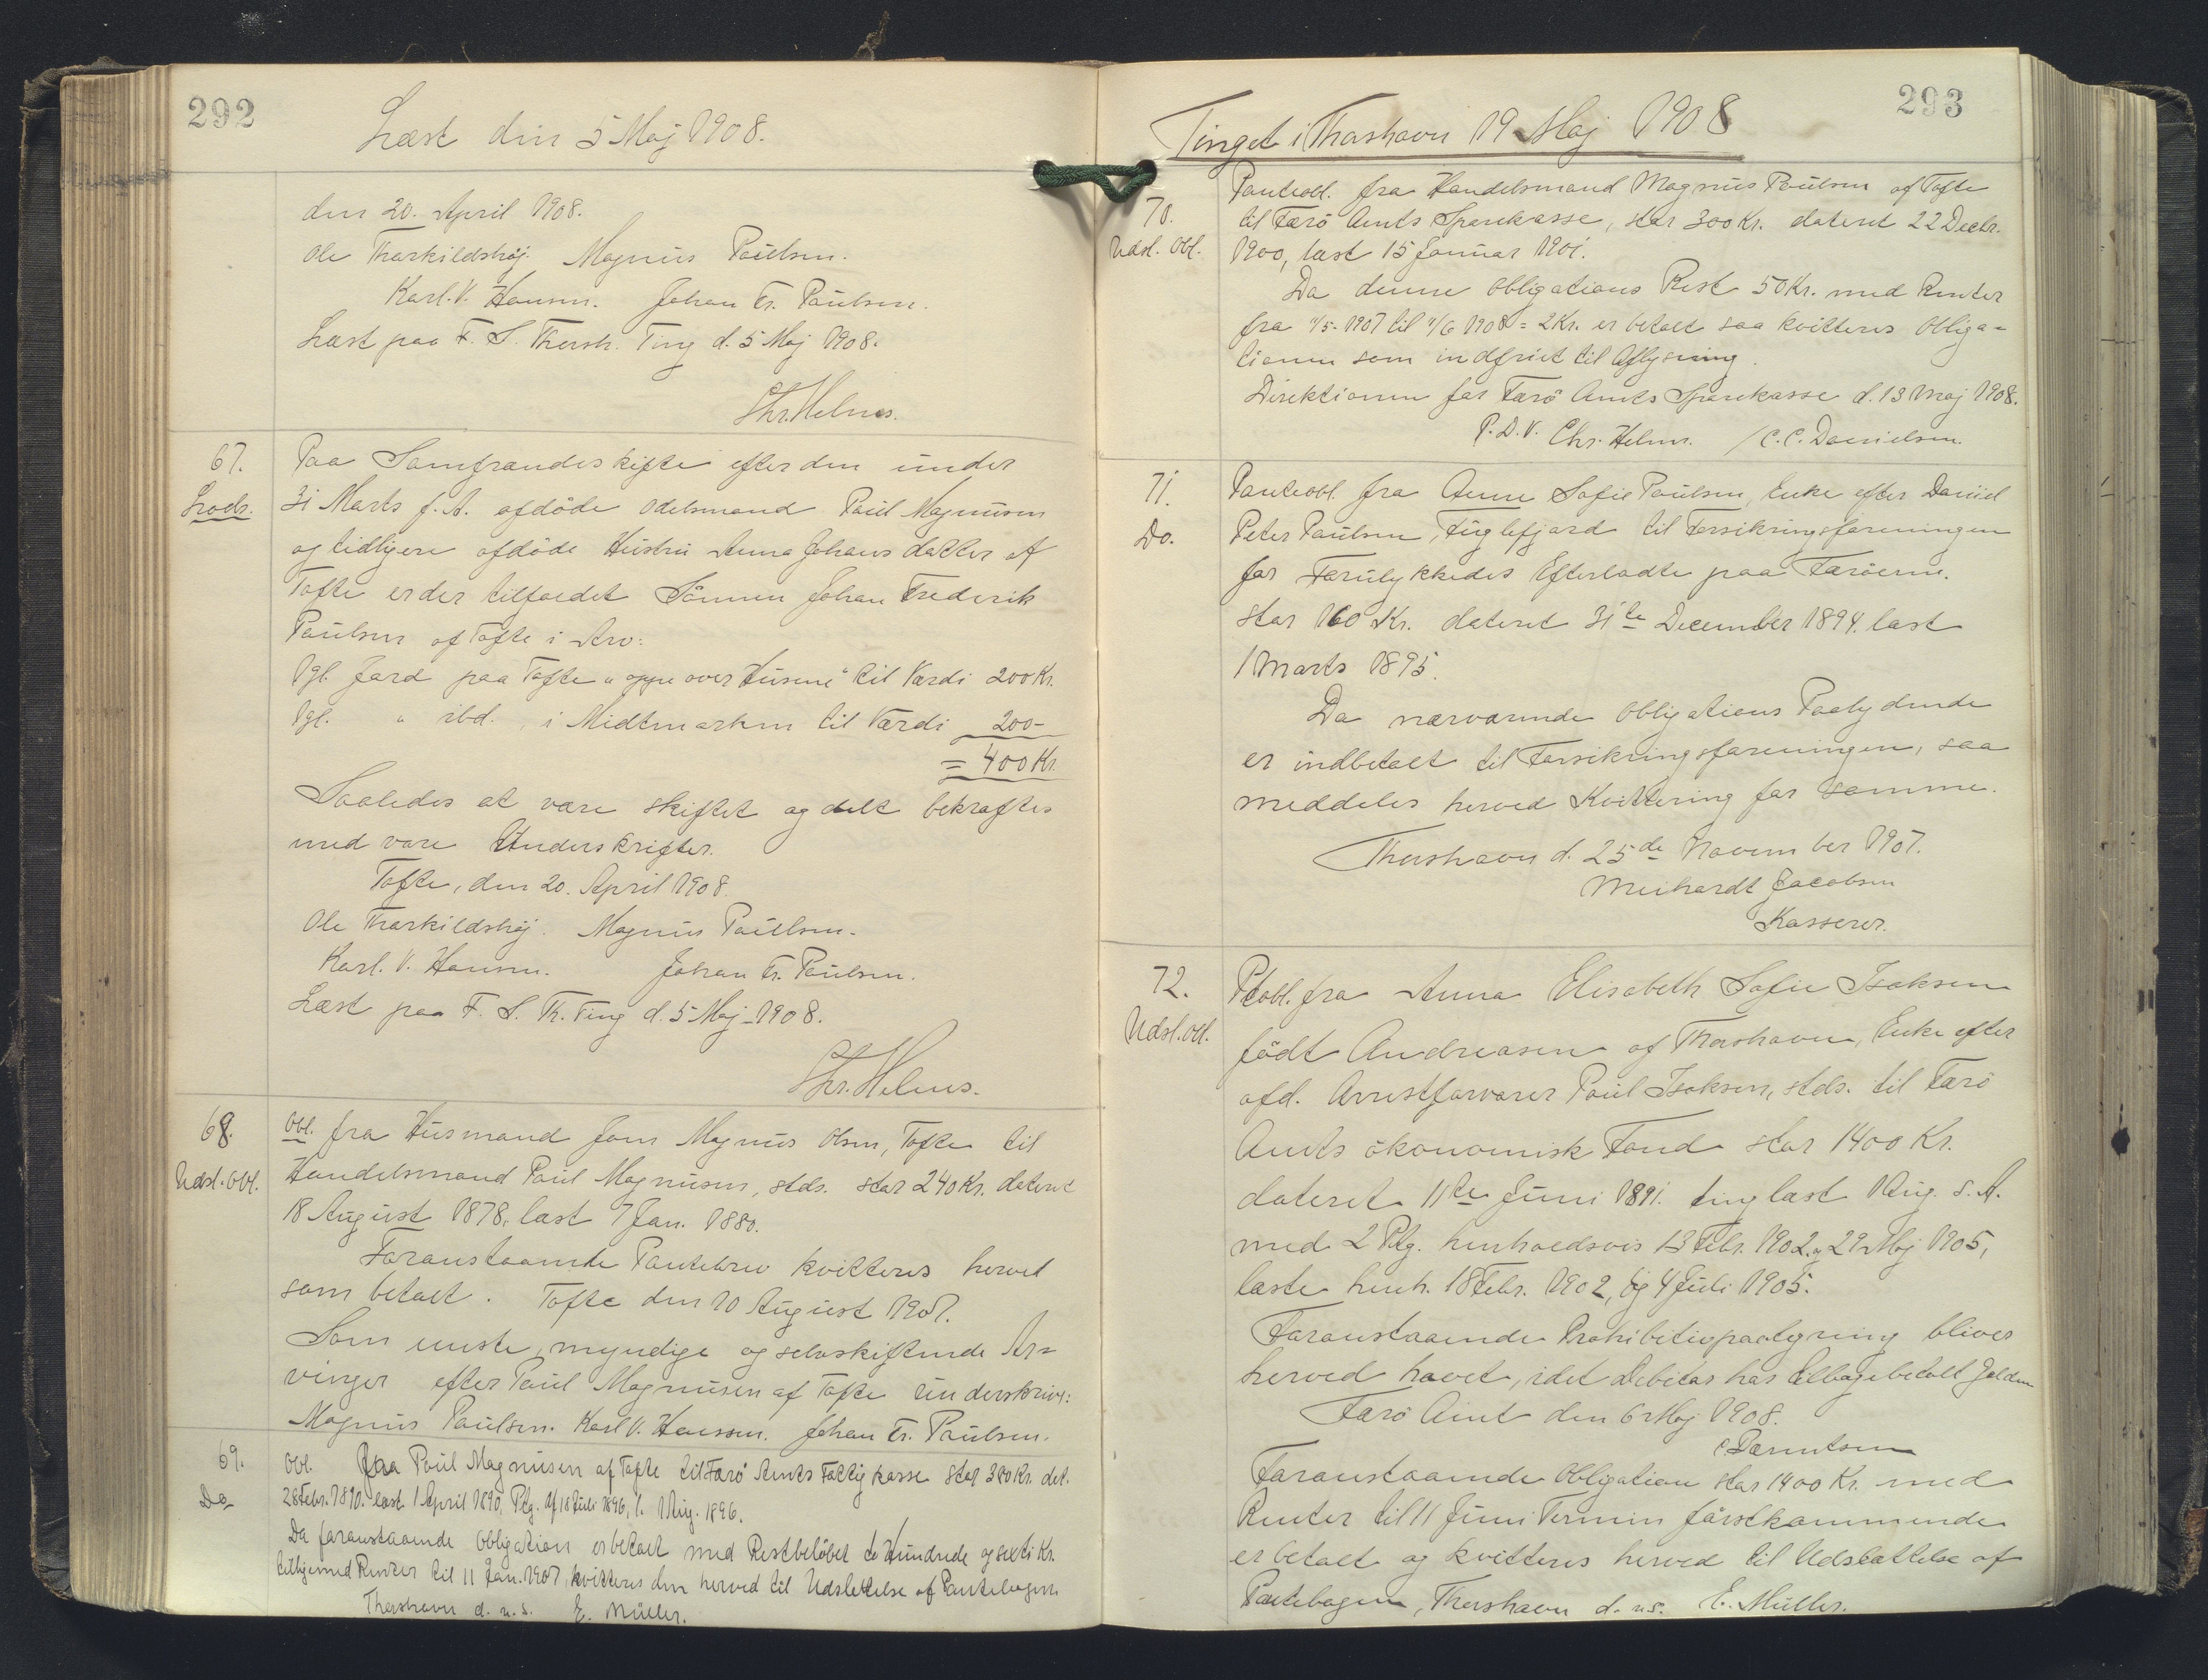 292
Læst den 5 Maj 1908.
den 20. April 1908.
Ole Tharkildshøj. Magnus Paulsen.
Karl. V. Hansen. Johan Fr. Paulsen.
Læst paa F. S. Thorsh. Ting d. 5 Maj 1908.
Chr. Helms.
67. Paa Samfrændeskifte efter den under
Lods. 31 Marts f. A. afdöde Odelsmand Paul Magnusen
og tidligere afdöde Hustru Anna Johansdatter af
Tofte er der tilfaldet Sönnen Johan Frederik
Paulsen af Tofte i Arv:
1 gl. Jord paa Tofte "oppe over Husene" til Værdi 200 Kr.
1 gl. " ibd. i Midtmarken til Værdi 200-
= 400 Kr.
Saaledes at være skiftet og delt bekræftes
med vore Underskrifter.
Tofte, den 20. April 1908.
Ole Tharkildshøj. Magnus Paulsen.
Karl. V. Hansen. Johan Fr. Paulsen.
Læst paa F. S. Th. Ting d. 5 Maj 1908.
Chr. Helms.
68. Obl. fra Husmand Jens Magnus Olsen, Tofte til
Udsl. Obl. Handelsmand Paul Magnusen, stds. stor 240 Kr. dateret
18 August 1878, læst 7 Jan. 1880.
Foranstaaende Pantebrev kvitteres herved
som betalt. Tofte den 10 August 1907.
Som eneste, myndige og selvskiftende Ar=
vinger efter Paul Magnusen af Tofte underskrive:
Magnus Paulsen. Karl V. Hanssen. Johan Fr. Paulsen.
69. Obl. fra Paul Magnusen af Tofte til Færö Amts Fattigkasse stor 300 Kr. dat.
Do 28 Febr. 1890. læst 1 April 1890, Ptg. af 18 Juli 1896, l. 1 Aug. 1896.
Da foranstaaende Obligation er betalt med Restbelöbet to Hundrede og sexti Kr.
tilligemed Renter til 11 Jan. 1907, kvitteres den herved til Udslettelse af Pantebogen
Thorshavn d. u. s. E. Müller.
293
Tinget i Thorshavn 19 Maj 1908
Panteobl. fra Handelsmand Magnus Paulsen af Tofte
70. til Færö Amts Sparekasse, stor 300 Kr. dateret 22 Decbr.
Udsl. Obl. 1900, læst 15 Januar 1901.
Da denne Obligations Rest 50 Kr. med Renter
fra 11/5- 1907 til 11/6 1908 = 2 Kr. er betalt saa kvitteres Obliga=
tionen som indfriet til Aflysning.
Direktionen for Færö Amts Sparekasse d. 13 Maj 1908.
P. D. V. Chr. Helms. / C. C. Danielsen.
71. Panteobl. fra Anne Sofie Paulsen, Enke efter Daniel
Do. Peter Paulsen, Fuglefjord til Forsikringsforeningen
for Forulykkedes Efterladte paa Færöerne.
stor 160 Kr. dateret 31te December 1894. læst
1 Marts 1895.
Da nærværende Obligations Paalydende
er indbetalt til Forsikringsforeningen, saa
meddeles herved Kvittering for samme.
Thorshavn d. 25de November 1907.
Meihardt Jacobsen
Kasserer.
72. Ptobl. fra Anna Elisabeth Sofie Isaksen
Udsl. obl. födt Andreasen af Thorshavn, Enke efter
afd. Arrestforvarer Paul Isaksen, stds. til Færö
Amts ökonomisk Fond stor 1400 Kr.
dateret 11te Juni 1891. tinglæst 1 Aug. s. A.
med 2 Ptg. henholdsvis 13 Febr. 1902 og 29 Maj 1905,
læste henh. 18 Febr. 1902, og 4 Juli 1905.
Foranstaaende Prohibitivpaategning bliver
herved hævet, idet Debitor har tilbagebetalt Gælden
Færö Amt den 6 Maj 1908.
C Bærentsen
Foranstaaende Obligation stor 1400 Kr. med
Renter til 11 Juni Termin förstkommende
er betalt og kvitteres herved til Udslættelse af
Pantebogen, Thorshavn d. u. s. E. Müller.